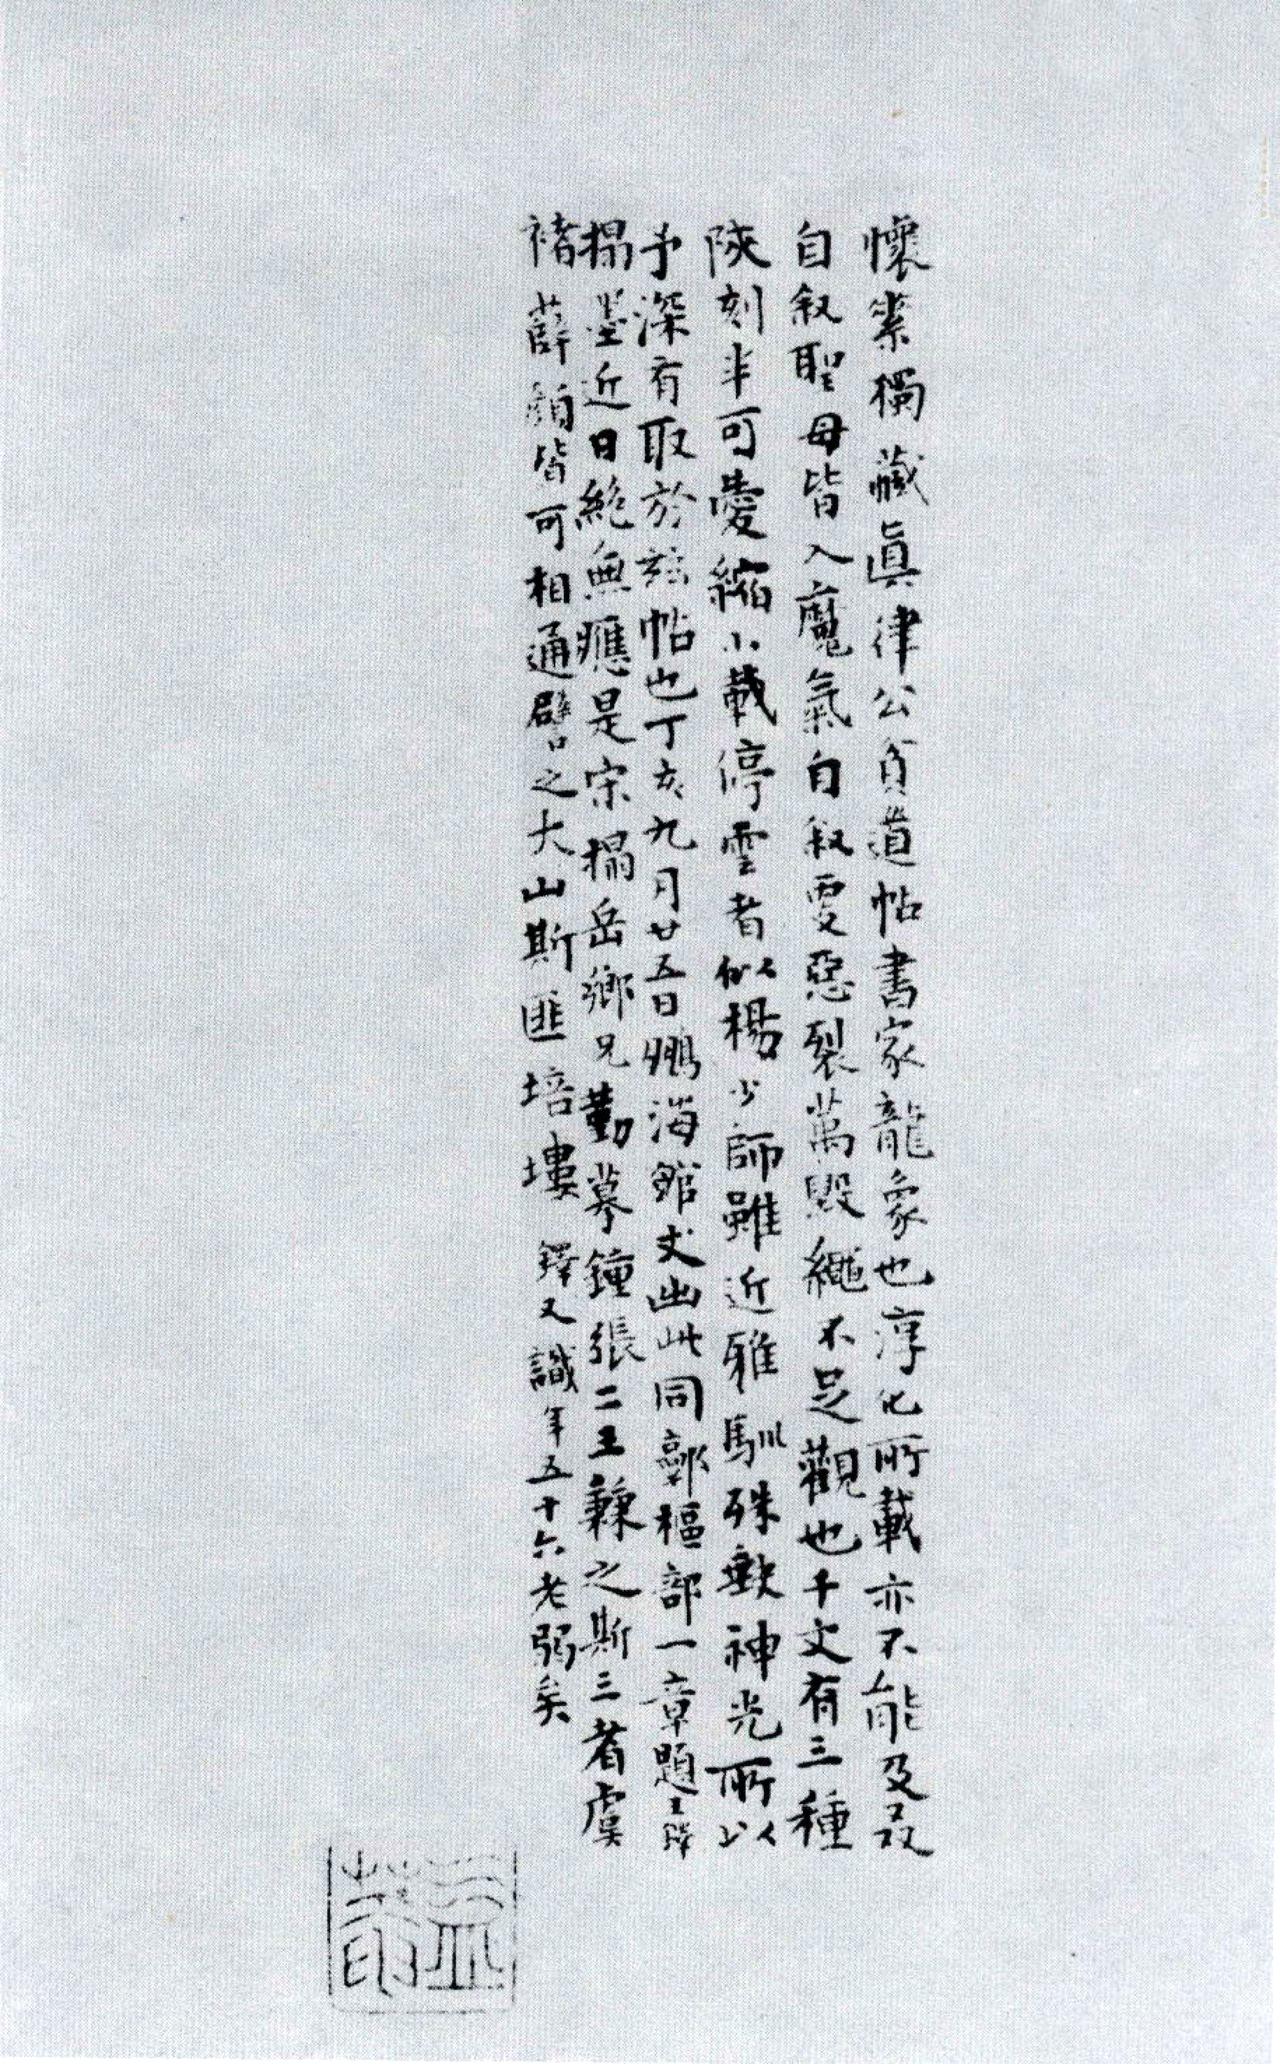 懷素獨藏眞律公貧道帖書家龍象也淳化所載亦不能及叝
自叙聖母皆入魔氣自叙更惡裂萬毀繩不足觀也千文有三種
陝刻半可愛縮小載停雲者似楊少師雖近雅馴殊歉神光所以
予深有取於茲帖也丁亥九月廿五日鵬海館丈出此同鄴樞部一章題王鐸
搨墨近日絶無應是宋搨岳鄉兄勤摹鐘張二王蘓之斯三者虞
褚薛顔皆可相通譬之大山斯匪培塿 鐸又識年五十六老弱矣